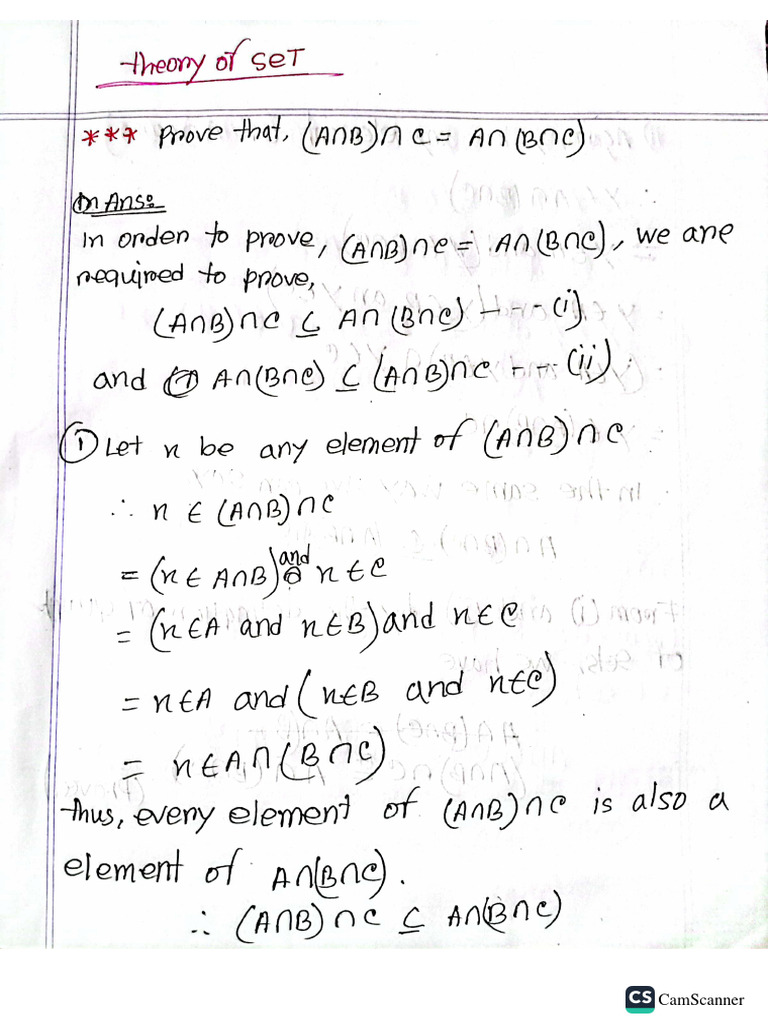 Theory of SET
*** Prove that, (A∩B)∩C = A∩(B∩C)
Ans:
In order to prove, (A∩B)∩C = A∩(B∩C), we are
required to prove,
(A∩B)∩C ⊆ A∩(B∩C) --- (i)
and A∩(B∩C) ⊆ (A∩B)∩C --- (ii)
① Let x be any element of (A∩B)∩C
∴ x ∈ (A∩B)∩C
= (x ∈ A∩B) and x ∈ C
= (x∈A and x∈B) and x∈C
= x∈A and (x∈B and x∈C)
= x∈A∩(B∩C)
Thus, every element of (A∩B)∩C is also a
element of A∩(B∩C).
∴ (A∩B)∩C ⊆ A∩(B∩C)
CS CamScanner